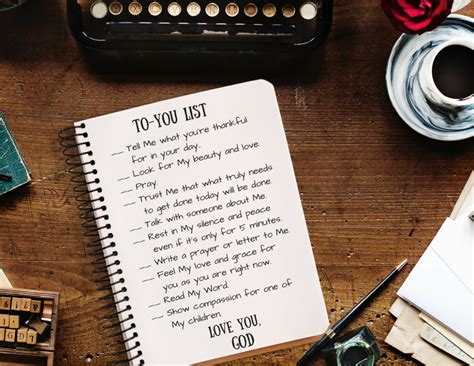 TO-YOU LIST
__ Tell Me what you're thankful
for in your day.
__ Look for My beauty and love.
__ Pray.
__ Trust Me that what truly needs
to get done today will be done.
__ Talk with someone about Me.
__ Rest in My silence and peace
even if it's only for 5 minutes.
__ Write a prayer or letter to Me.
__ Feel My love and grace for
you as you are right now.
__ Read My Word.
__ Show compassion for one of
My children.
LOVE YOU,
GOD